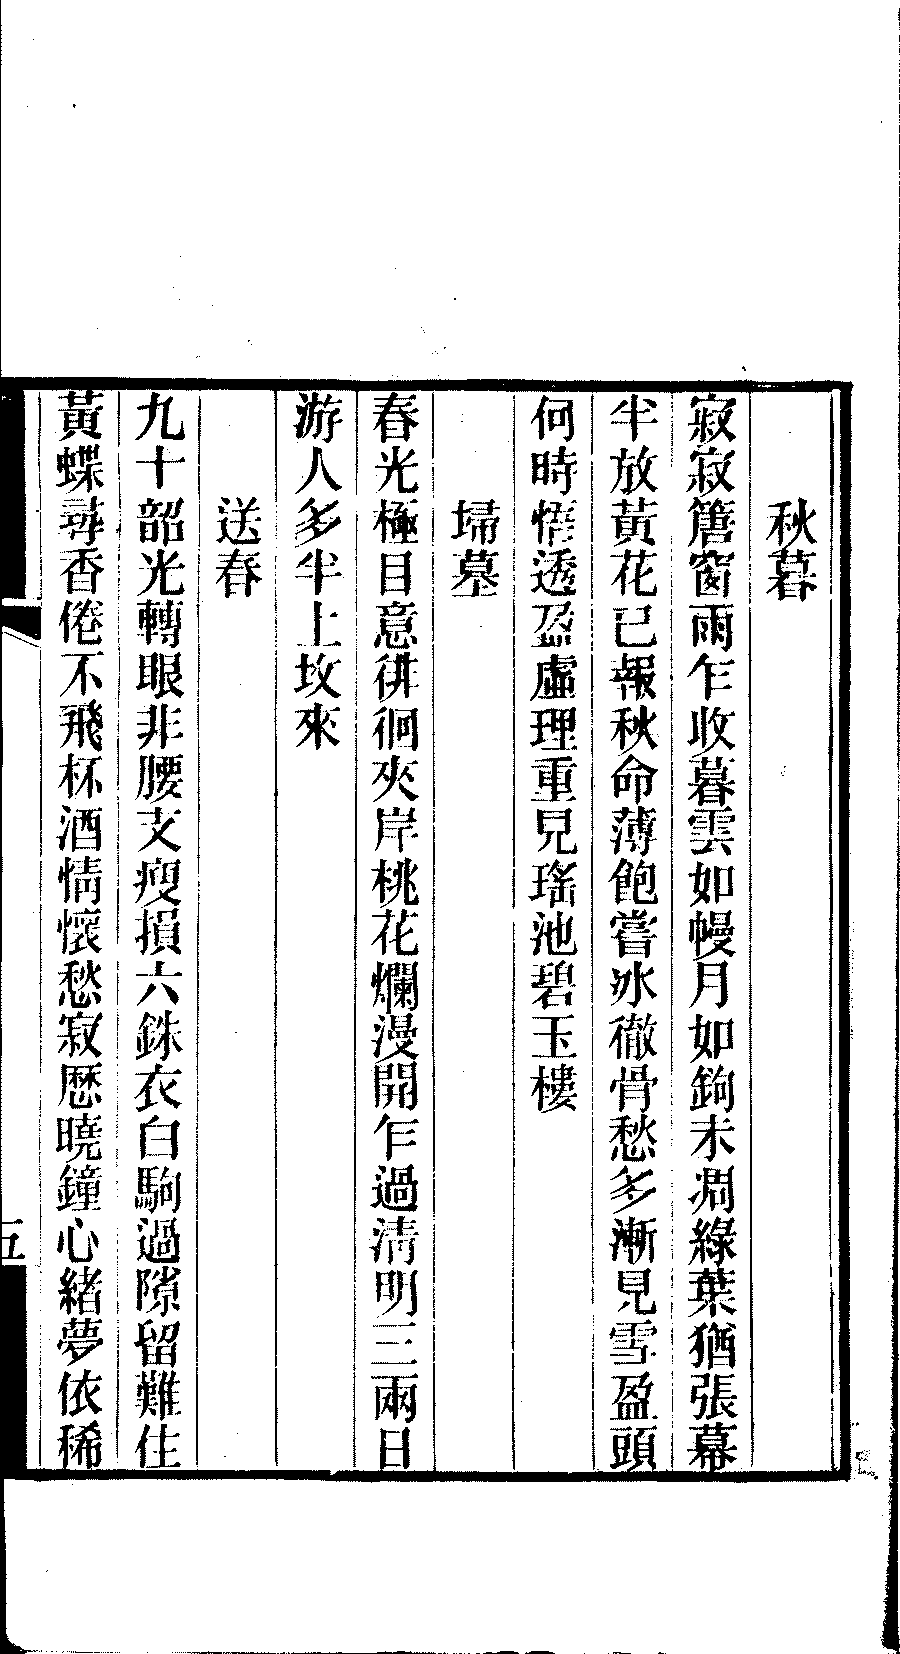 秋暮
寂寂簷窗雨乍收暮雲如幔月如鉤未凋綠葉猶張幕
半放黃花已報秋命薄飽嘗冰徹骨愁多漸見雪盈頭
何時悟透盈虛理重見瑤池碧玉樓
埽墓
春光極目意徘徊夾岸桃花爛漫開乍過清明三兩日
游人多半上坟來
送春
九十韶光轉眼非腰支瘦損六銖衣白駒過隙留難住
黃蝶尋香倦不飛杯酒情懷愁寂歷曉鐘心緒夢依稀
五